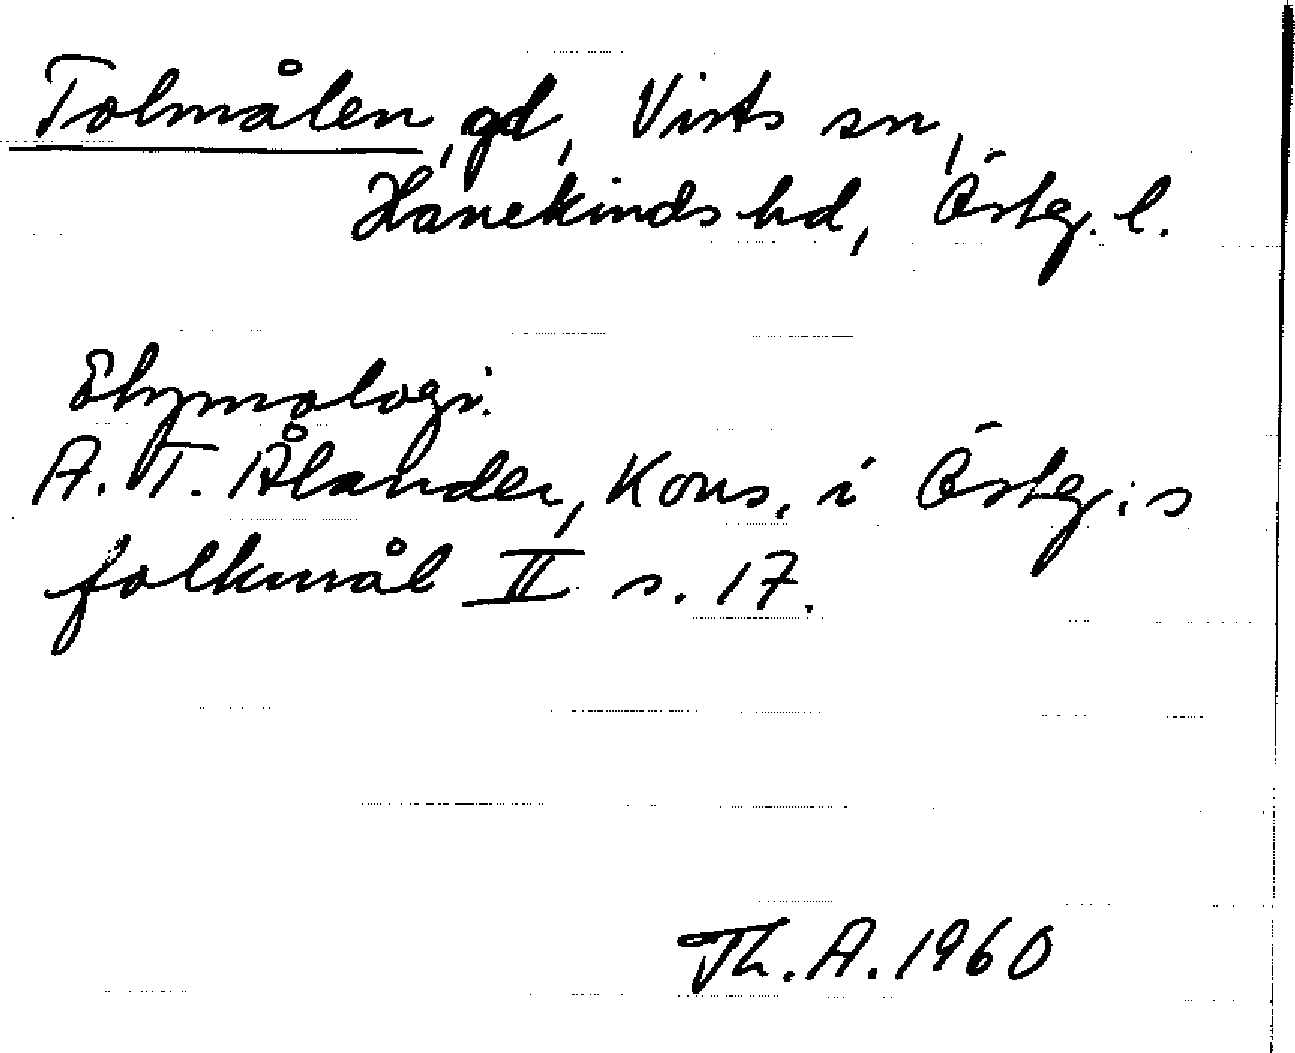 Tolmålen, gd, Vists sn,
Hanekinds hd, Östg. l.
Etymologi.
A. T. Ålander, Kons. i Östg:s
folkmål II s. 17.
Th. A. 1960